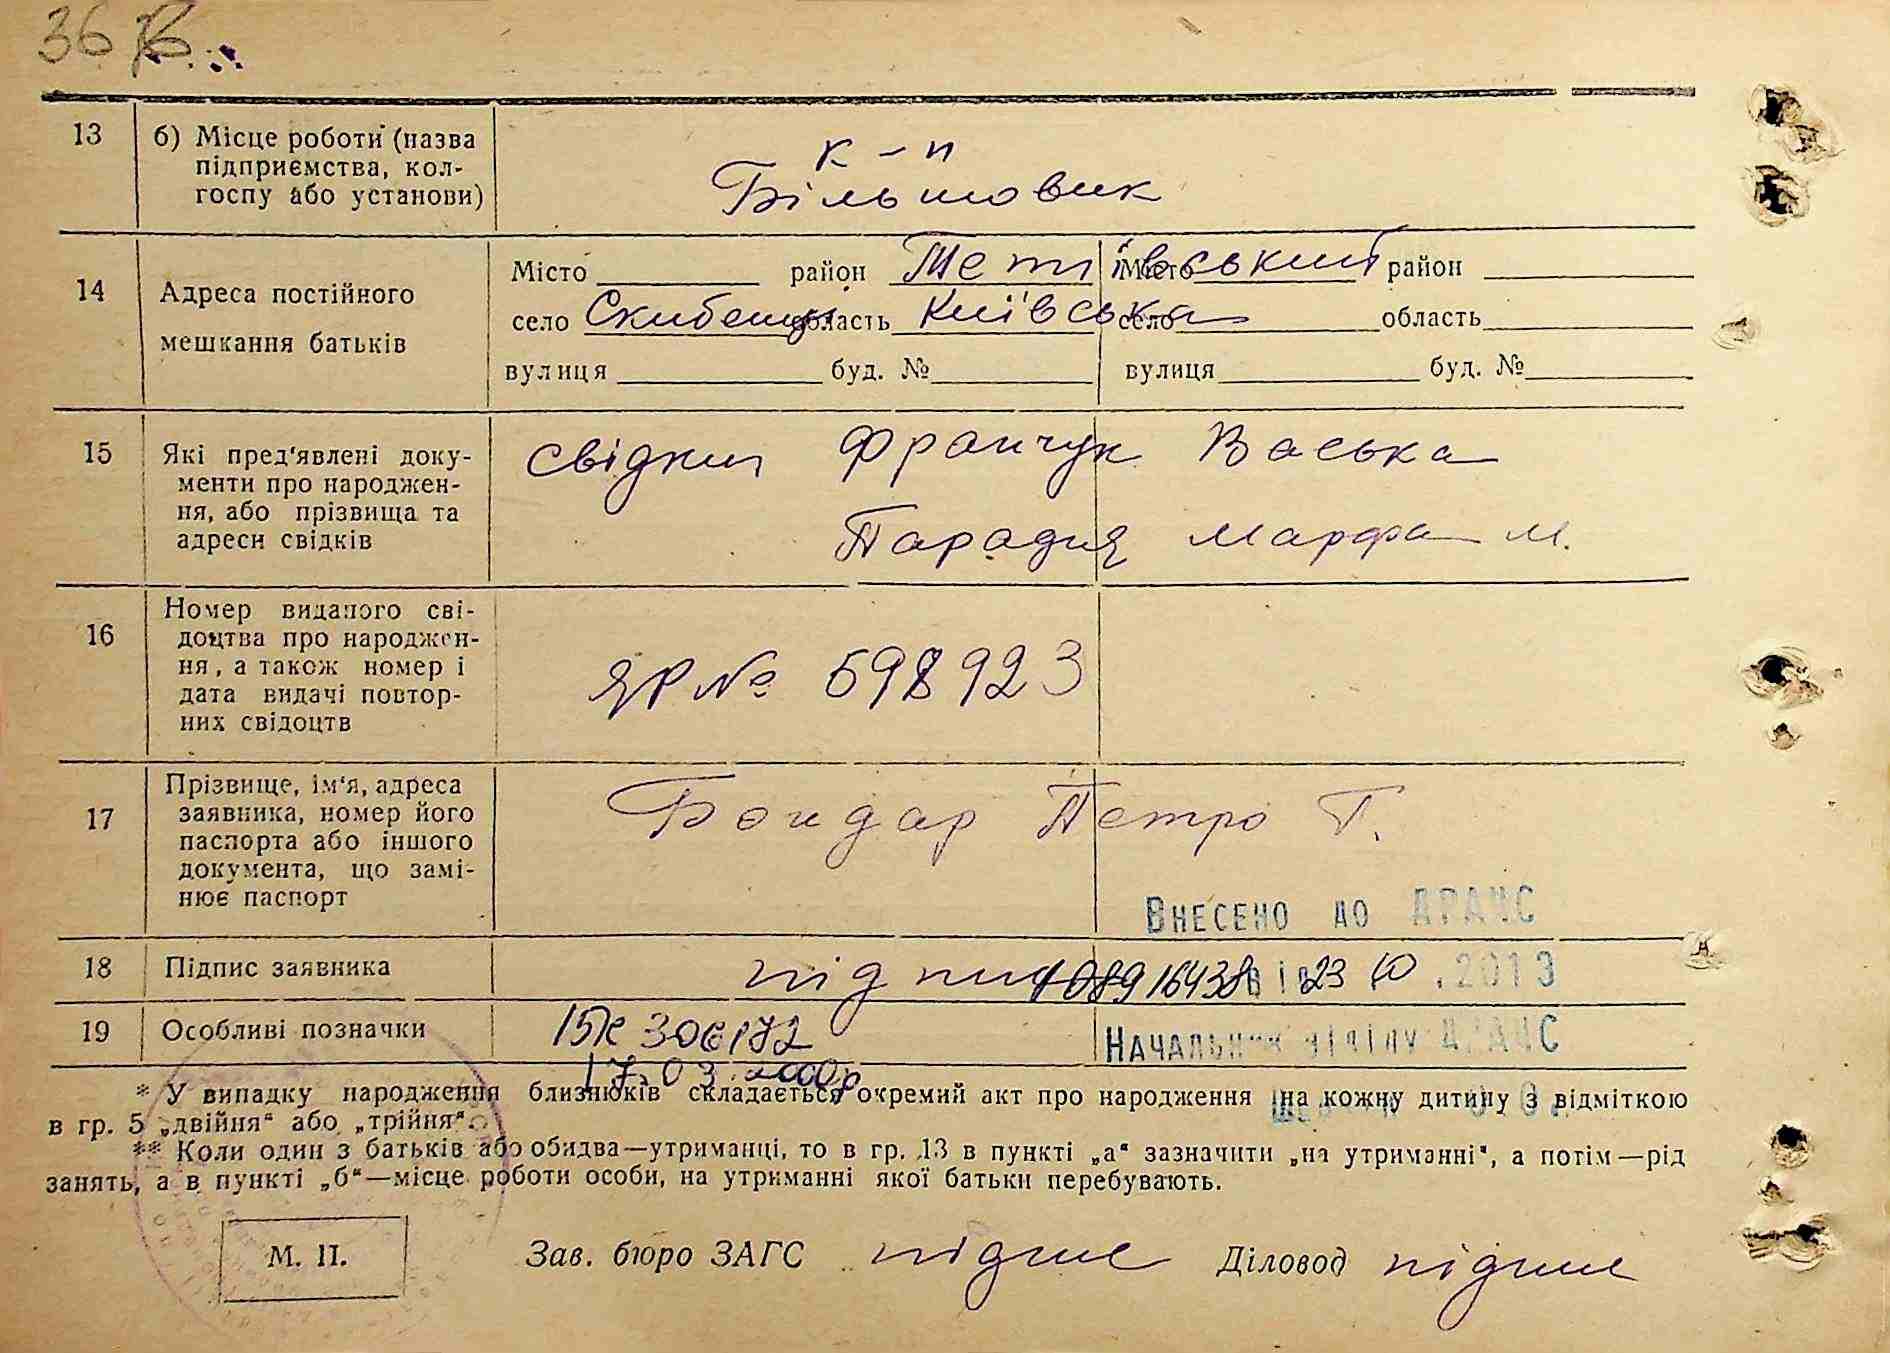 36
13 б) Місце роботи (назва підприємства, кол-
госпу або установи)
к-п
Більшовик
14 Адреса постійного
мешкання батьків
Місто район Тетіївський Місто район
село Скибенці область Київська село область
вулиця буд. № вулиця буд. №
15 Які пред'явлені доку-
менти про народжен-
ня, або прізвища та
адреси свідків
свідки Франчук Васька
Парадня Марфа М.
16 Номер виданого сві-
доцтва про народжен-
ня, а також номер і
дата видачі повтор-
них свідоцтв
ЯР № 598923
17 Прізвище, ім'я, адреса
заявника, номер його
паспорта або іншого
документа, що замі-
нює паспорт
Бондар Петро Г.
Внесено до ДРАЦС
18 Підпис заявника
підпис 1089 16438 від 23 10 .2013
19 Особливі позначки
17.03.2000р
Начальник відділу ДРАЦС
* У випадку народження близнюків складається окремий акт про народження на кожну дитину з відміткою
в гр. 5 „двійня“ або „трійня“.
** Коли один з батьків або обидва—утриманці, то в гр. 13 в пункті „а“ зазначити „на утриманні“, а потім—рід
занять, а в пункті „б“—місце роботи особи, на утриманні якої батьки перебувають.
М. П. Зав. бюро ЗАГС підпис Діловод підпис